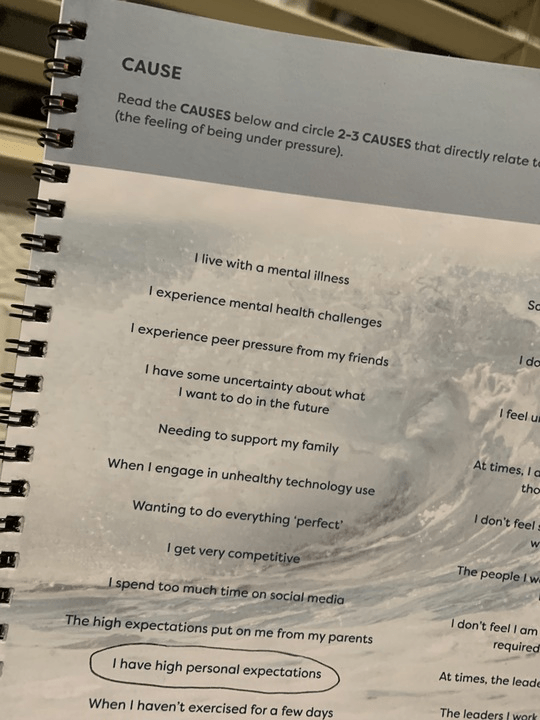 CAUSE
Read the CAUSES below and circle 2-3 CAUSES that directly relate to
(the feeling of being under pressure).
I live with a mental illness
I experience mental health challenges
I experience peer pressure from my friends
I have some uncertainty about what
I want to do in the future
Needing to support my family
When I engage in unhealthy technology use
Wanting to do everything 'perfect'
I get very competitive
I spend too much time on social media
The high expectations put on me from my parents
I have high personal expectations
When I haven't exercised for a few days
I do
I feel
At times, I
I don't feel
The people I
I don't feel I am
required
At times, the
The leaders I work